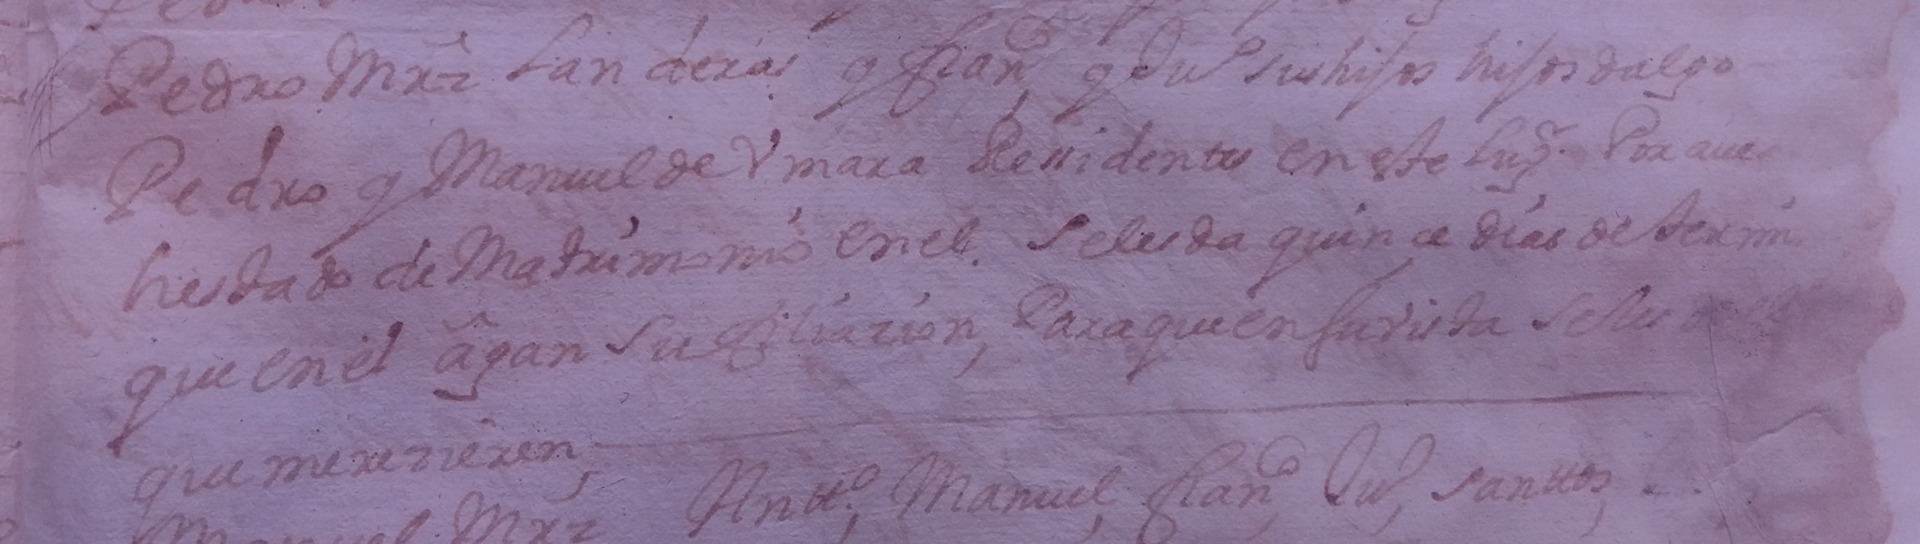 Pedro Mrz Landeras y fran^co y Ju^o sus hijos hijosdalgo
Pedro y Manuel de Vmara Ressidentes en este lug^r Por aver
hesdado de Matrimonio en el. Seles da quinse dias de termin
que en el agan su filiasion, Para que en su vista Seles
que meresieren,
Manuel Mrz Antt^o, Manuel, fran^co, Ju^o, santtos,